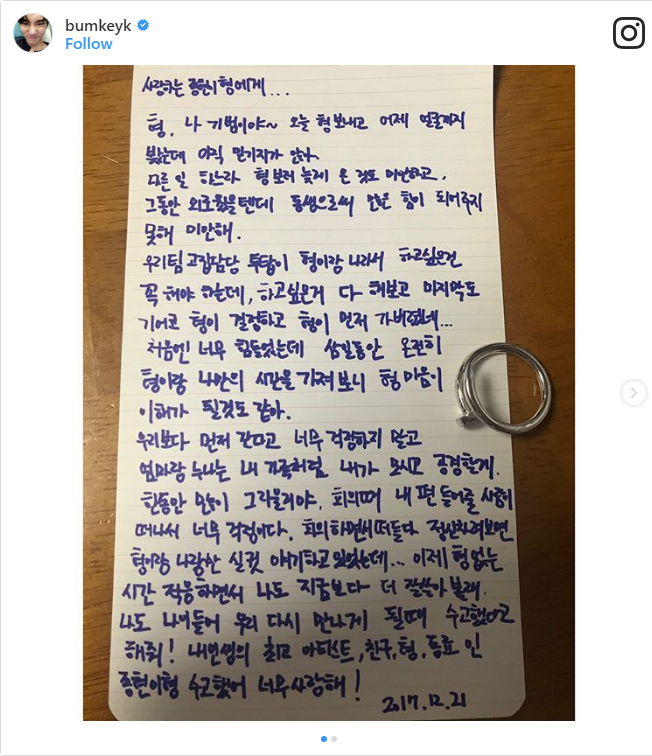 bumkeyk
Follow
사랑하는 종현이형에게...
형. 나 기범이야~ 오늘 형 보내고 어제 얼굴까지
봤는데 아직 믿기지가 않아.
다른 일 하느라 형보러 늦게 온 것도 미안하고,
그동안 외로웠을텐데 동생으로써 많은 힘이 되어주지
못해 미안해.
우리팀 고집담당 투탑이 형이랑 나라서 하고싶은건
꼭 해야 하는데, 하고싶은거 다 해보고 마지막도
기어코 형이 결정하고 형이 먼저 가버렸네...
처음엔 너무 힘들었는데 삼일동안 온전히
형이랑 나만의 시간을 가져보니 형 마음이
이해가 될것도 같아.
우리보다 먼저 간다고 너무 걱정하지 말고
엄마랑 누나는 내 가족처럼 내가 모시고 공경할게.
한동안 많이 그리울거야. 회의때 내 편 들어줄 사람이
떠나서 너무 걱정이다. 회의하면서 떠들다 정신차려보면
형이랑 나랑만 실컷 얘기하고 있었는데... 이제 형 없는
시간 적응하면서 나도 지금보다 더 잘 살아볼래.
나도 나이들어 우리 다시 만나게 될때 수고했다고
해줘! 내인생의 최고 아티스트, 친구, 형, 동료 인
종현이형 수고했어 너무 사랑해!
2017.12.21